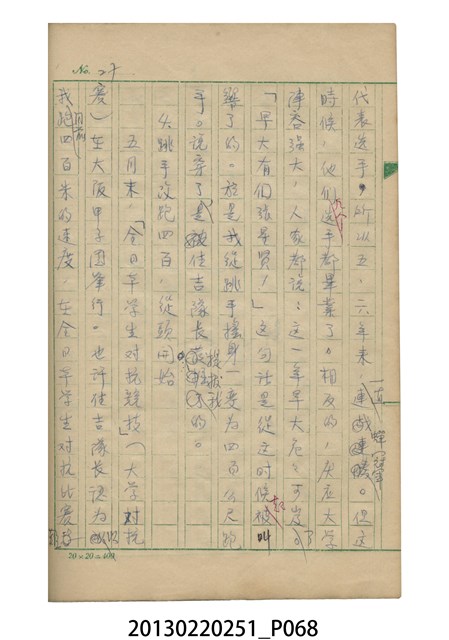 No. 24
代表選手，所以五、六年來，一直蟬冠軍。但這
時候，他們選手都畢業了。相反的，其他大學
陣容強大，人家都說：這一年早大危
「早大有個張星賢！」這句話是從這時候被叫
響了的。於是我從跳手搖身一變為四百公尺跑
手。說穿了是佳吉隊長 提拔我 的。
頭跳手改跑四百，從頭開始
五月末，「全日本學生對抗競技」（大學對抗
賽）在大阪甲子園舉行。也許佳吉隊長認為以
我目前四百米的速度，在全日本學生對抗比賽
20×20=400
20130220251_P068